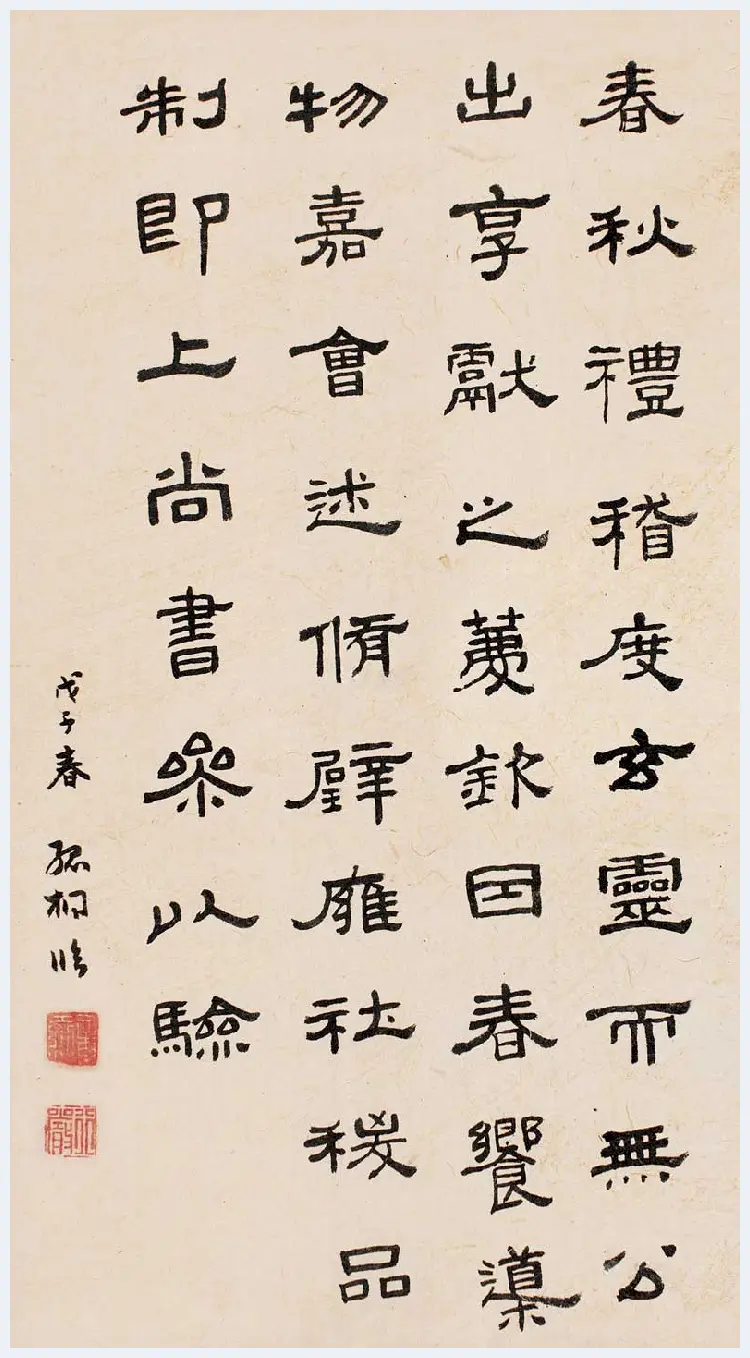 春秋禮稽度玄靈而無公
出享獻之薦欽因春饗導
物嘉會述脩辟雍社稷品
制即上尚書參以驗
戊子春 孤桐临